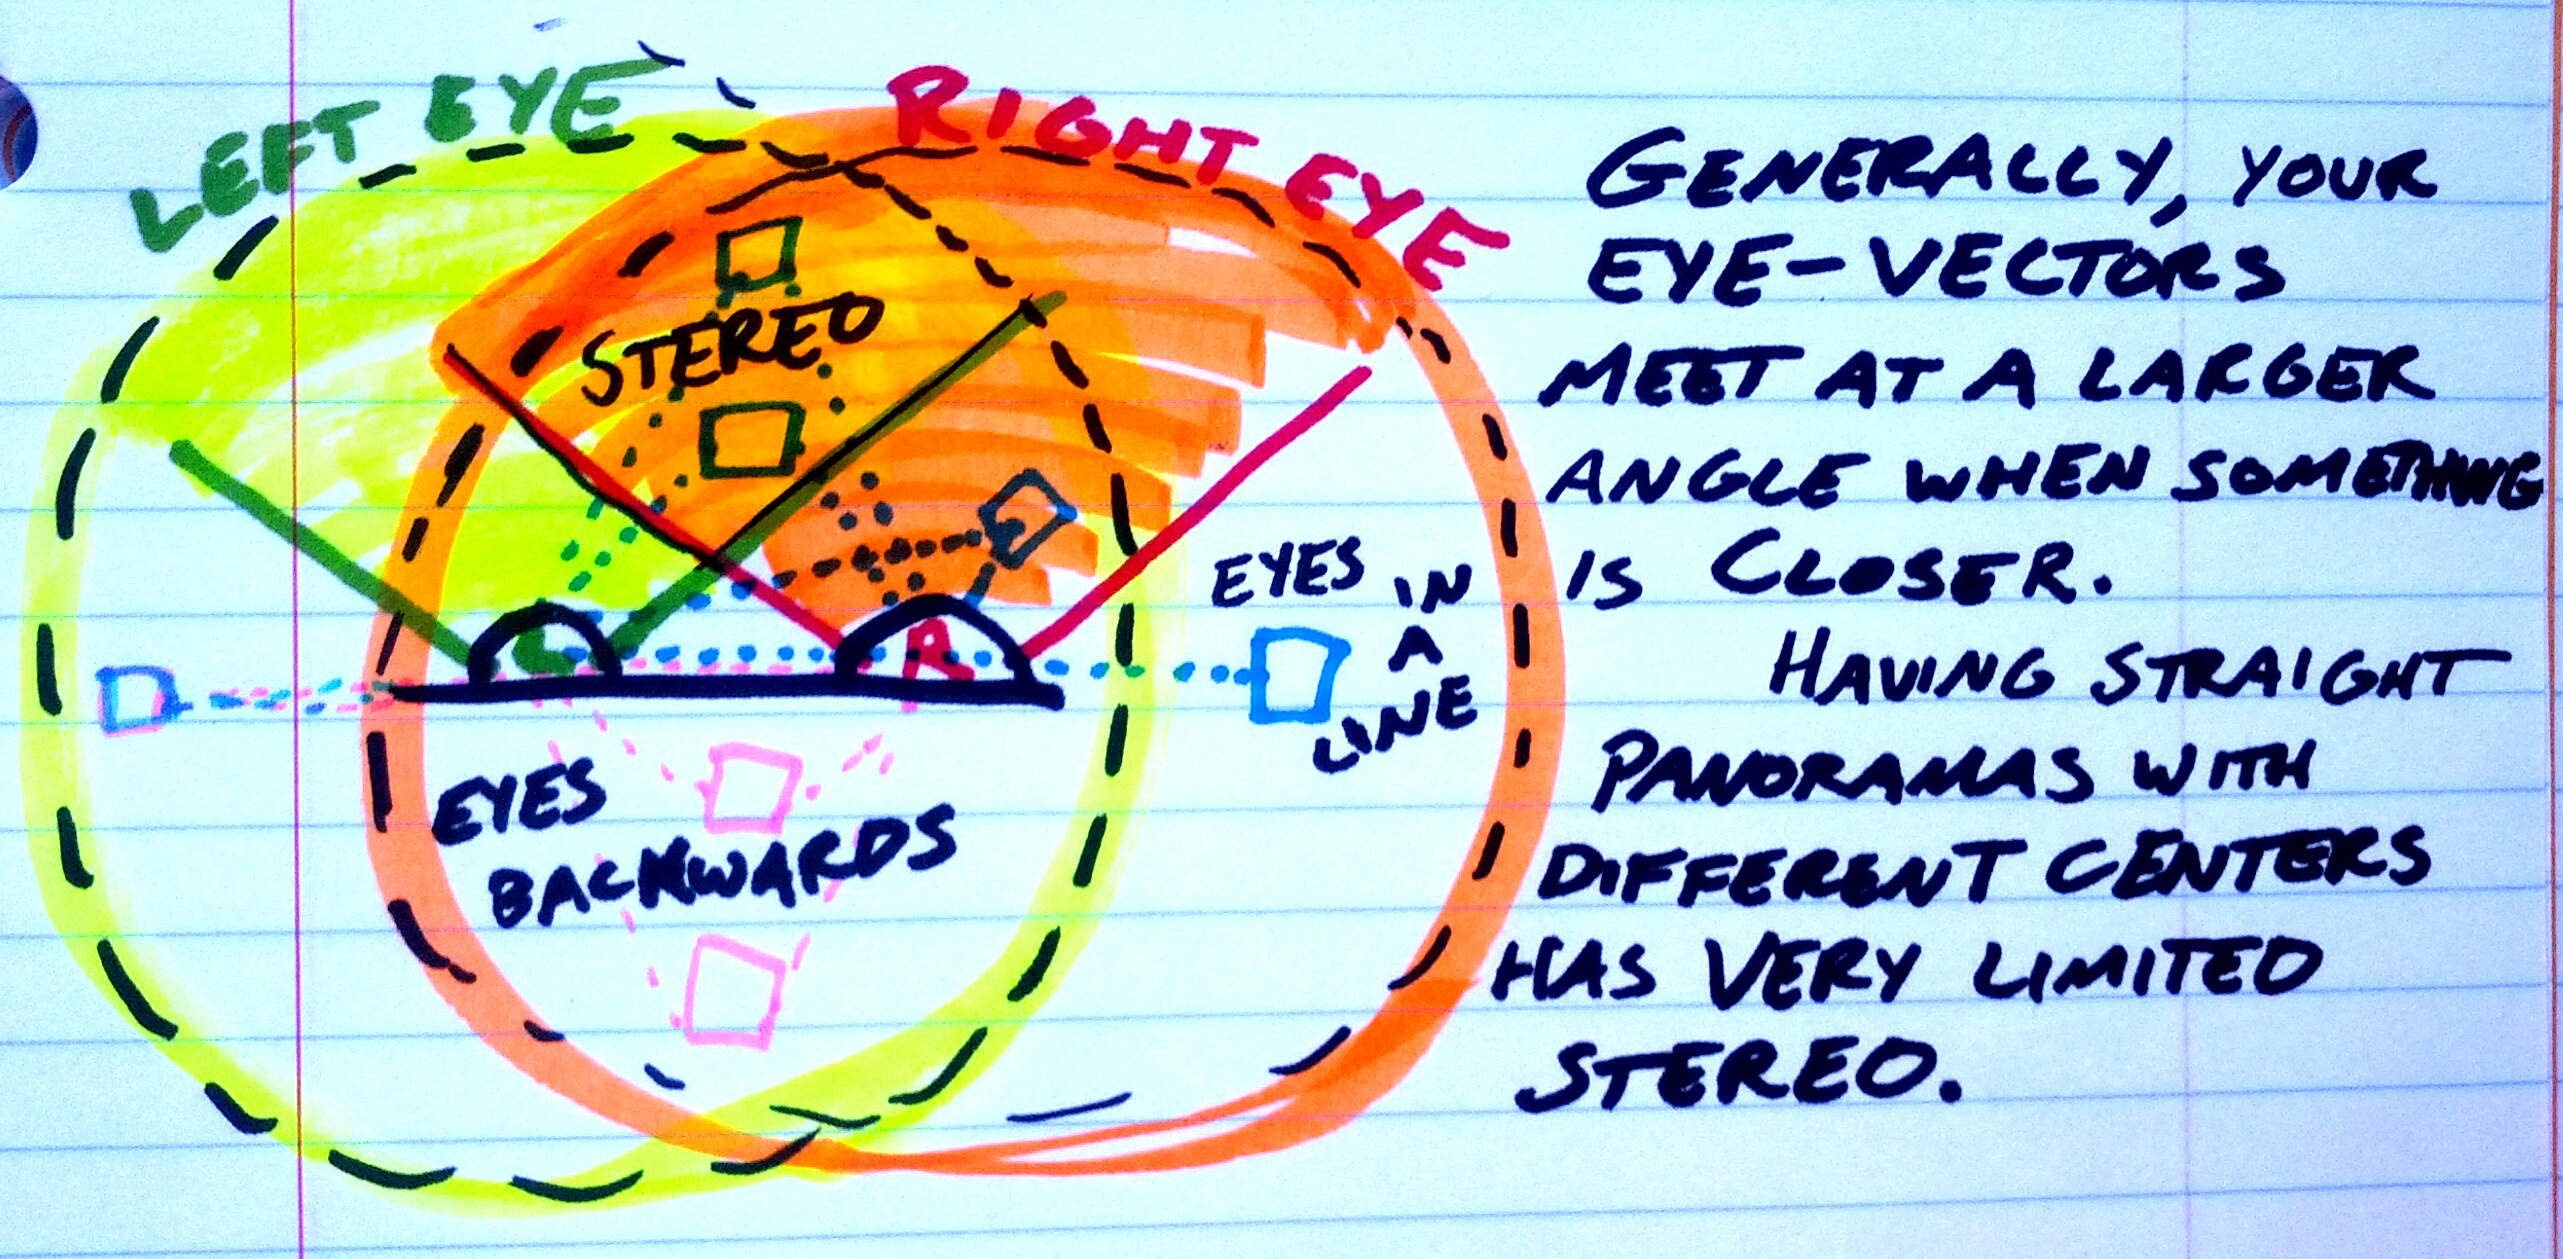 LEFT EYE
RIGHT EYE
STEREO
L
R
EYES
IN
A
LINE
EYES
BACKWARDS
GENERALLY, YOUR
EYE-VECTORS
MEET AT A LARGER
ANGLE WHEN SOMETHING
IS CLOSER.
HAVING STRAIGHT
PANORAMAS WITH
DIFFERENT CENTERS
HAS VERY LIMITED
STEREO.